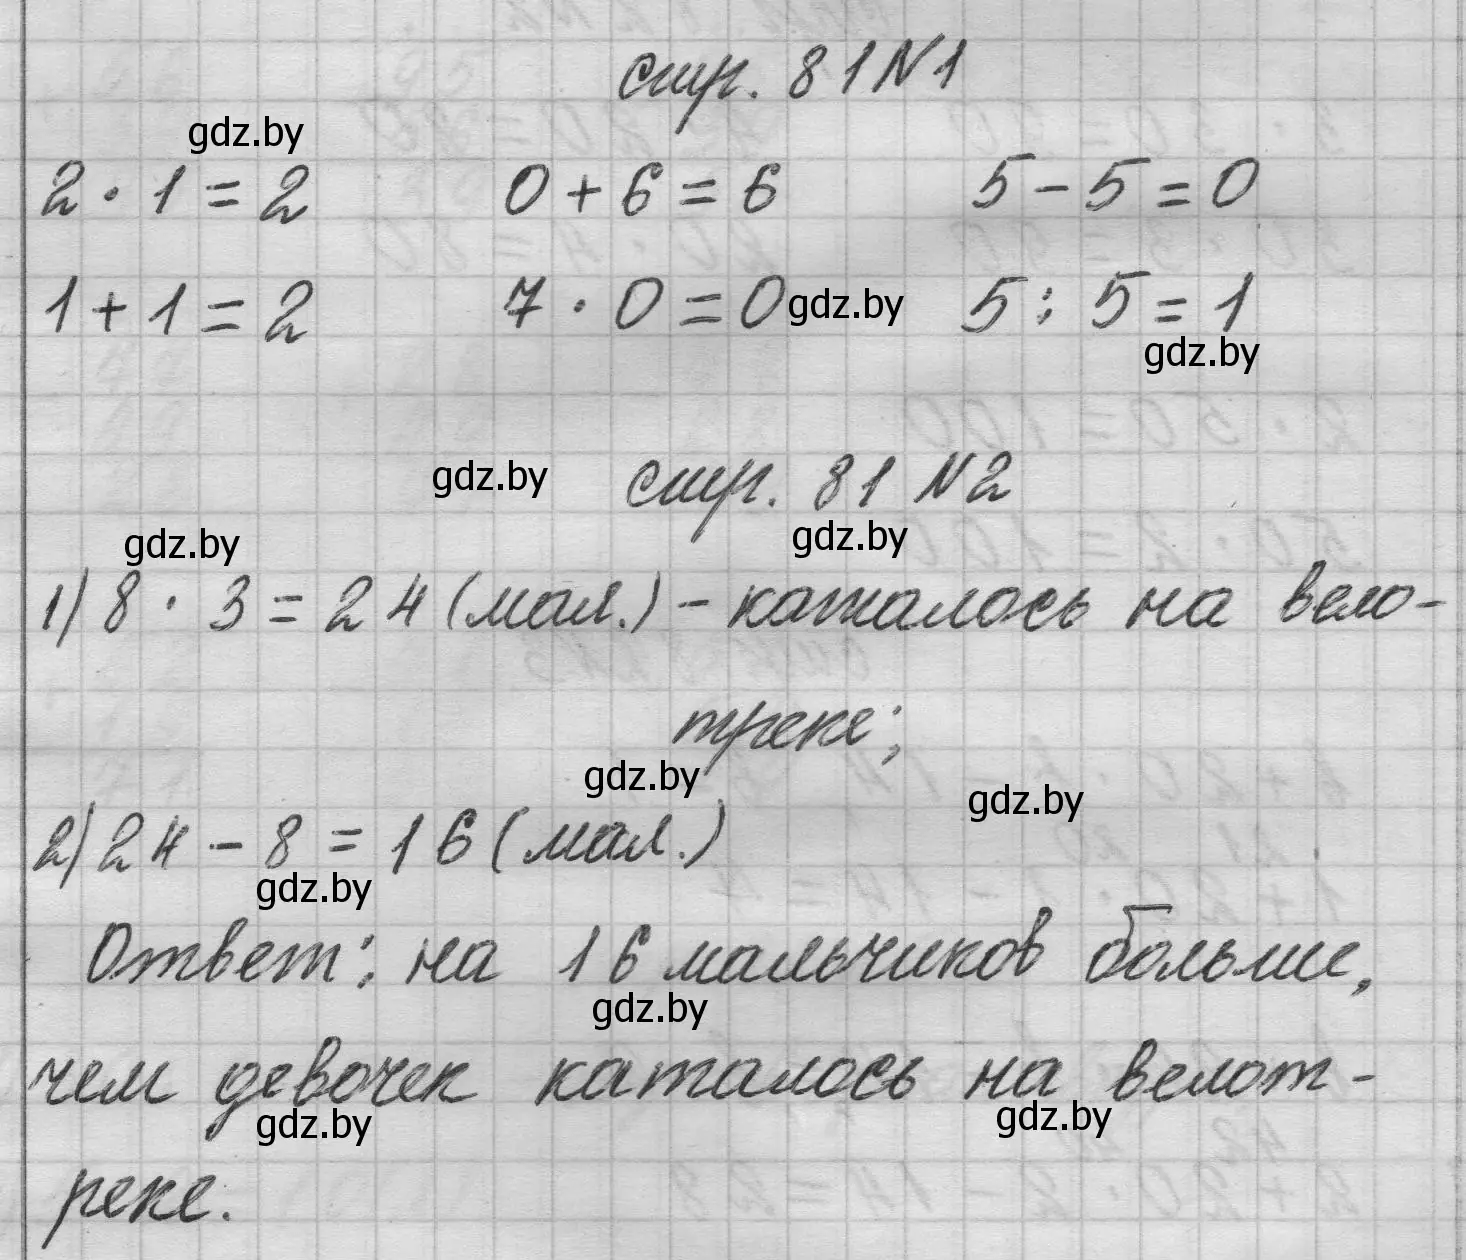 стр. 81 N1
gdz.by
2 · 1 = 2 0 + 6 = 6 5 - 5 = 0
1 + 1 = 2 7 · 0 = 0 gdz.by 5 : 5 = 1
gdz.by
gdz.by стр. 81 N2
gdz.by gdz.by
1) 8 · 3 = 24 (мал.) - каталось на вело-
треке;
gdz.by gdz.by
2) 24 - 8 = 16 (мал.)
gdz.by
Ответ: на 16 мальчиков больше,
gdz.by
чем девочек каталось на велот-
gdz.by gdz.by
реке.